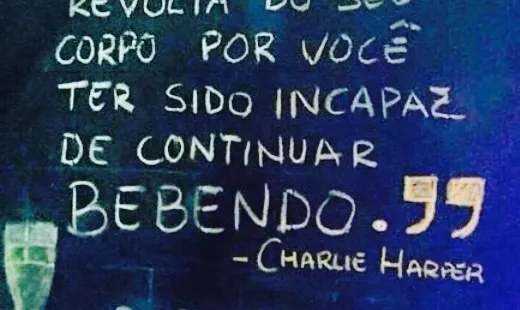 REVOLTA DO SEU
CORPO POR VOCÊ
TER SIDO INCAPAZ
DE CONTINUAR
BEBENDO.”
- CHARLIE HARPER